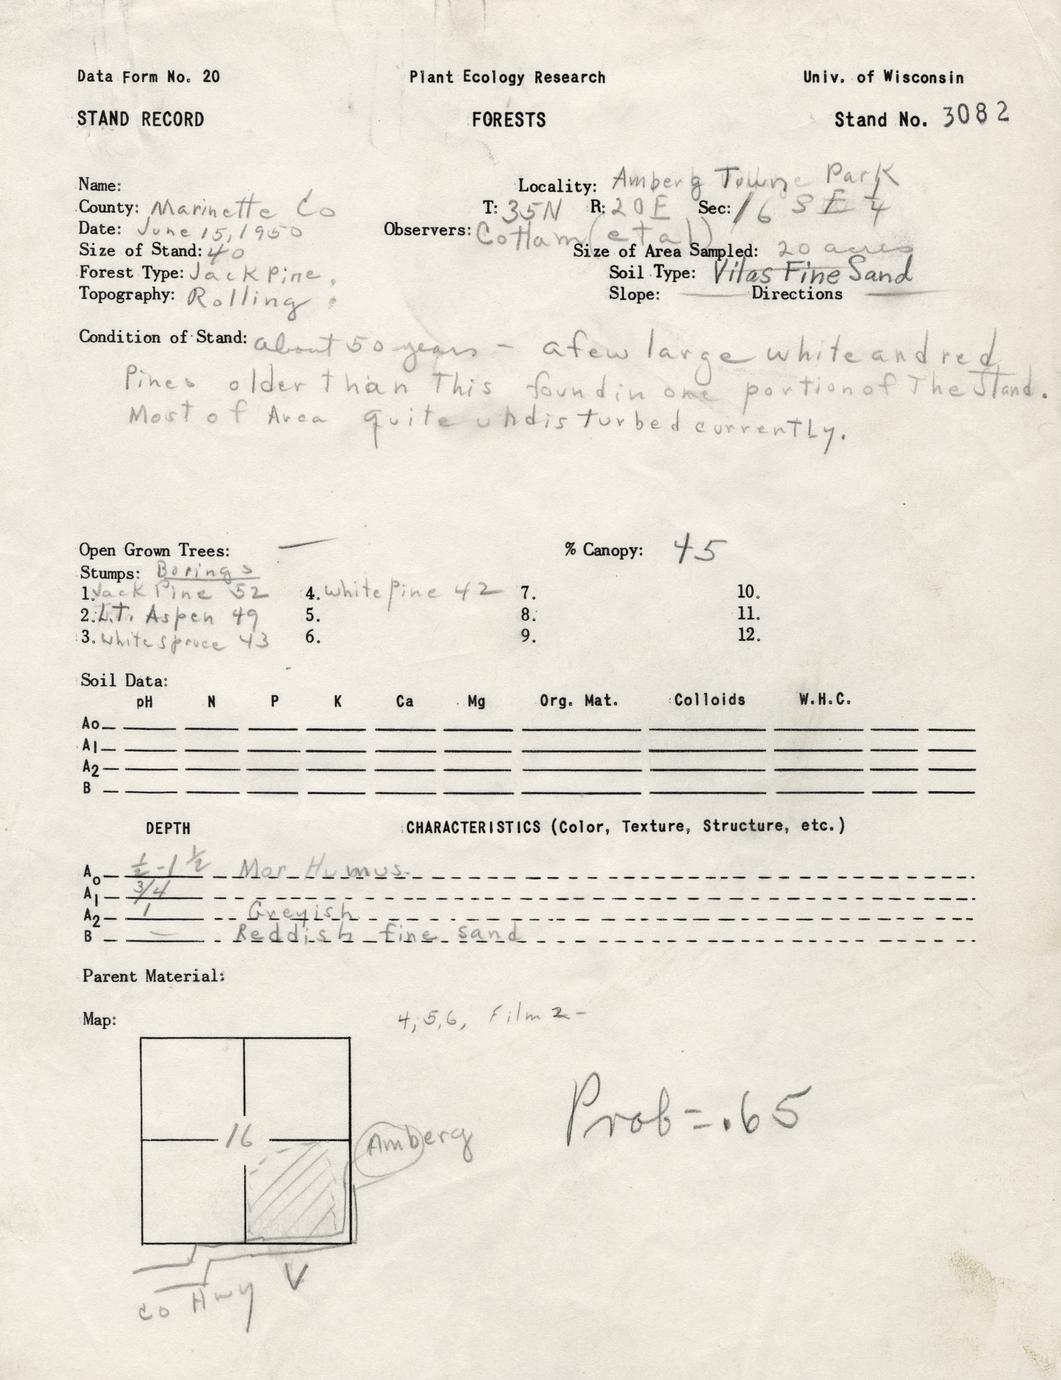 Data Form No. 20 Plant Ecology Research Univ. of Wisconsin
STAND RECORD FORESTS Stand No. 3082
Name: Locality: Amberg Towne Park
County: Marinette Co T: 35N R: 20E Sec: 16 SE 1/4
Date: June 15, 1950 Observers: Cottam (et al)
Size of Stand: 40 Size of Area Sampled: 20 acres
Forest Type: Jack Pine. Soil Type: Vilas Fine Sand
Topography: Rolling. Slope: — Directions —
Condition of Stand: about 50 years - a few large white and red
Pines older than This found in one portion of The Stand.
Most of Area quite undisturbed currently.
Open Grown Trees: — % Canopy: 45
Stumps: Borings
1. Jack Pine 52 4. White pine 42 7. 10.
2. L.T. Aspen 49 5. 8. 11.
3. White spruce 43 6. 9. 12.
Soil Data:
pH N P K Ca Mg Org. Mat. Colloids W.H.C.
Ao
A1
A2
B
DEPTH CHARACTERISTICS (Color, Texture, Structure, etc.)
Ao ½-1½ Mor Humus.
A1 3/4
A2 1 Greyish
B — Reddish fine sand
Parent Material:
Map: 4, 5, 6, Film 2-
Prob = .65
16 Amberg
Co Hwy V